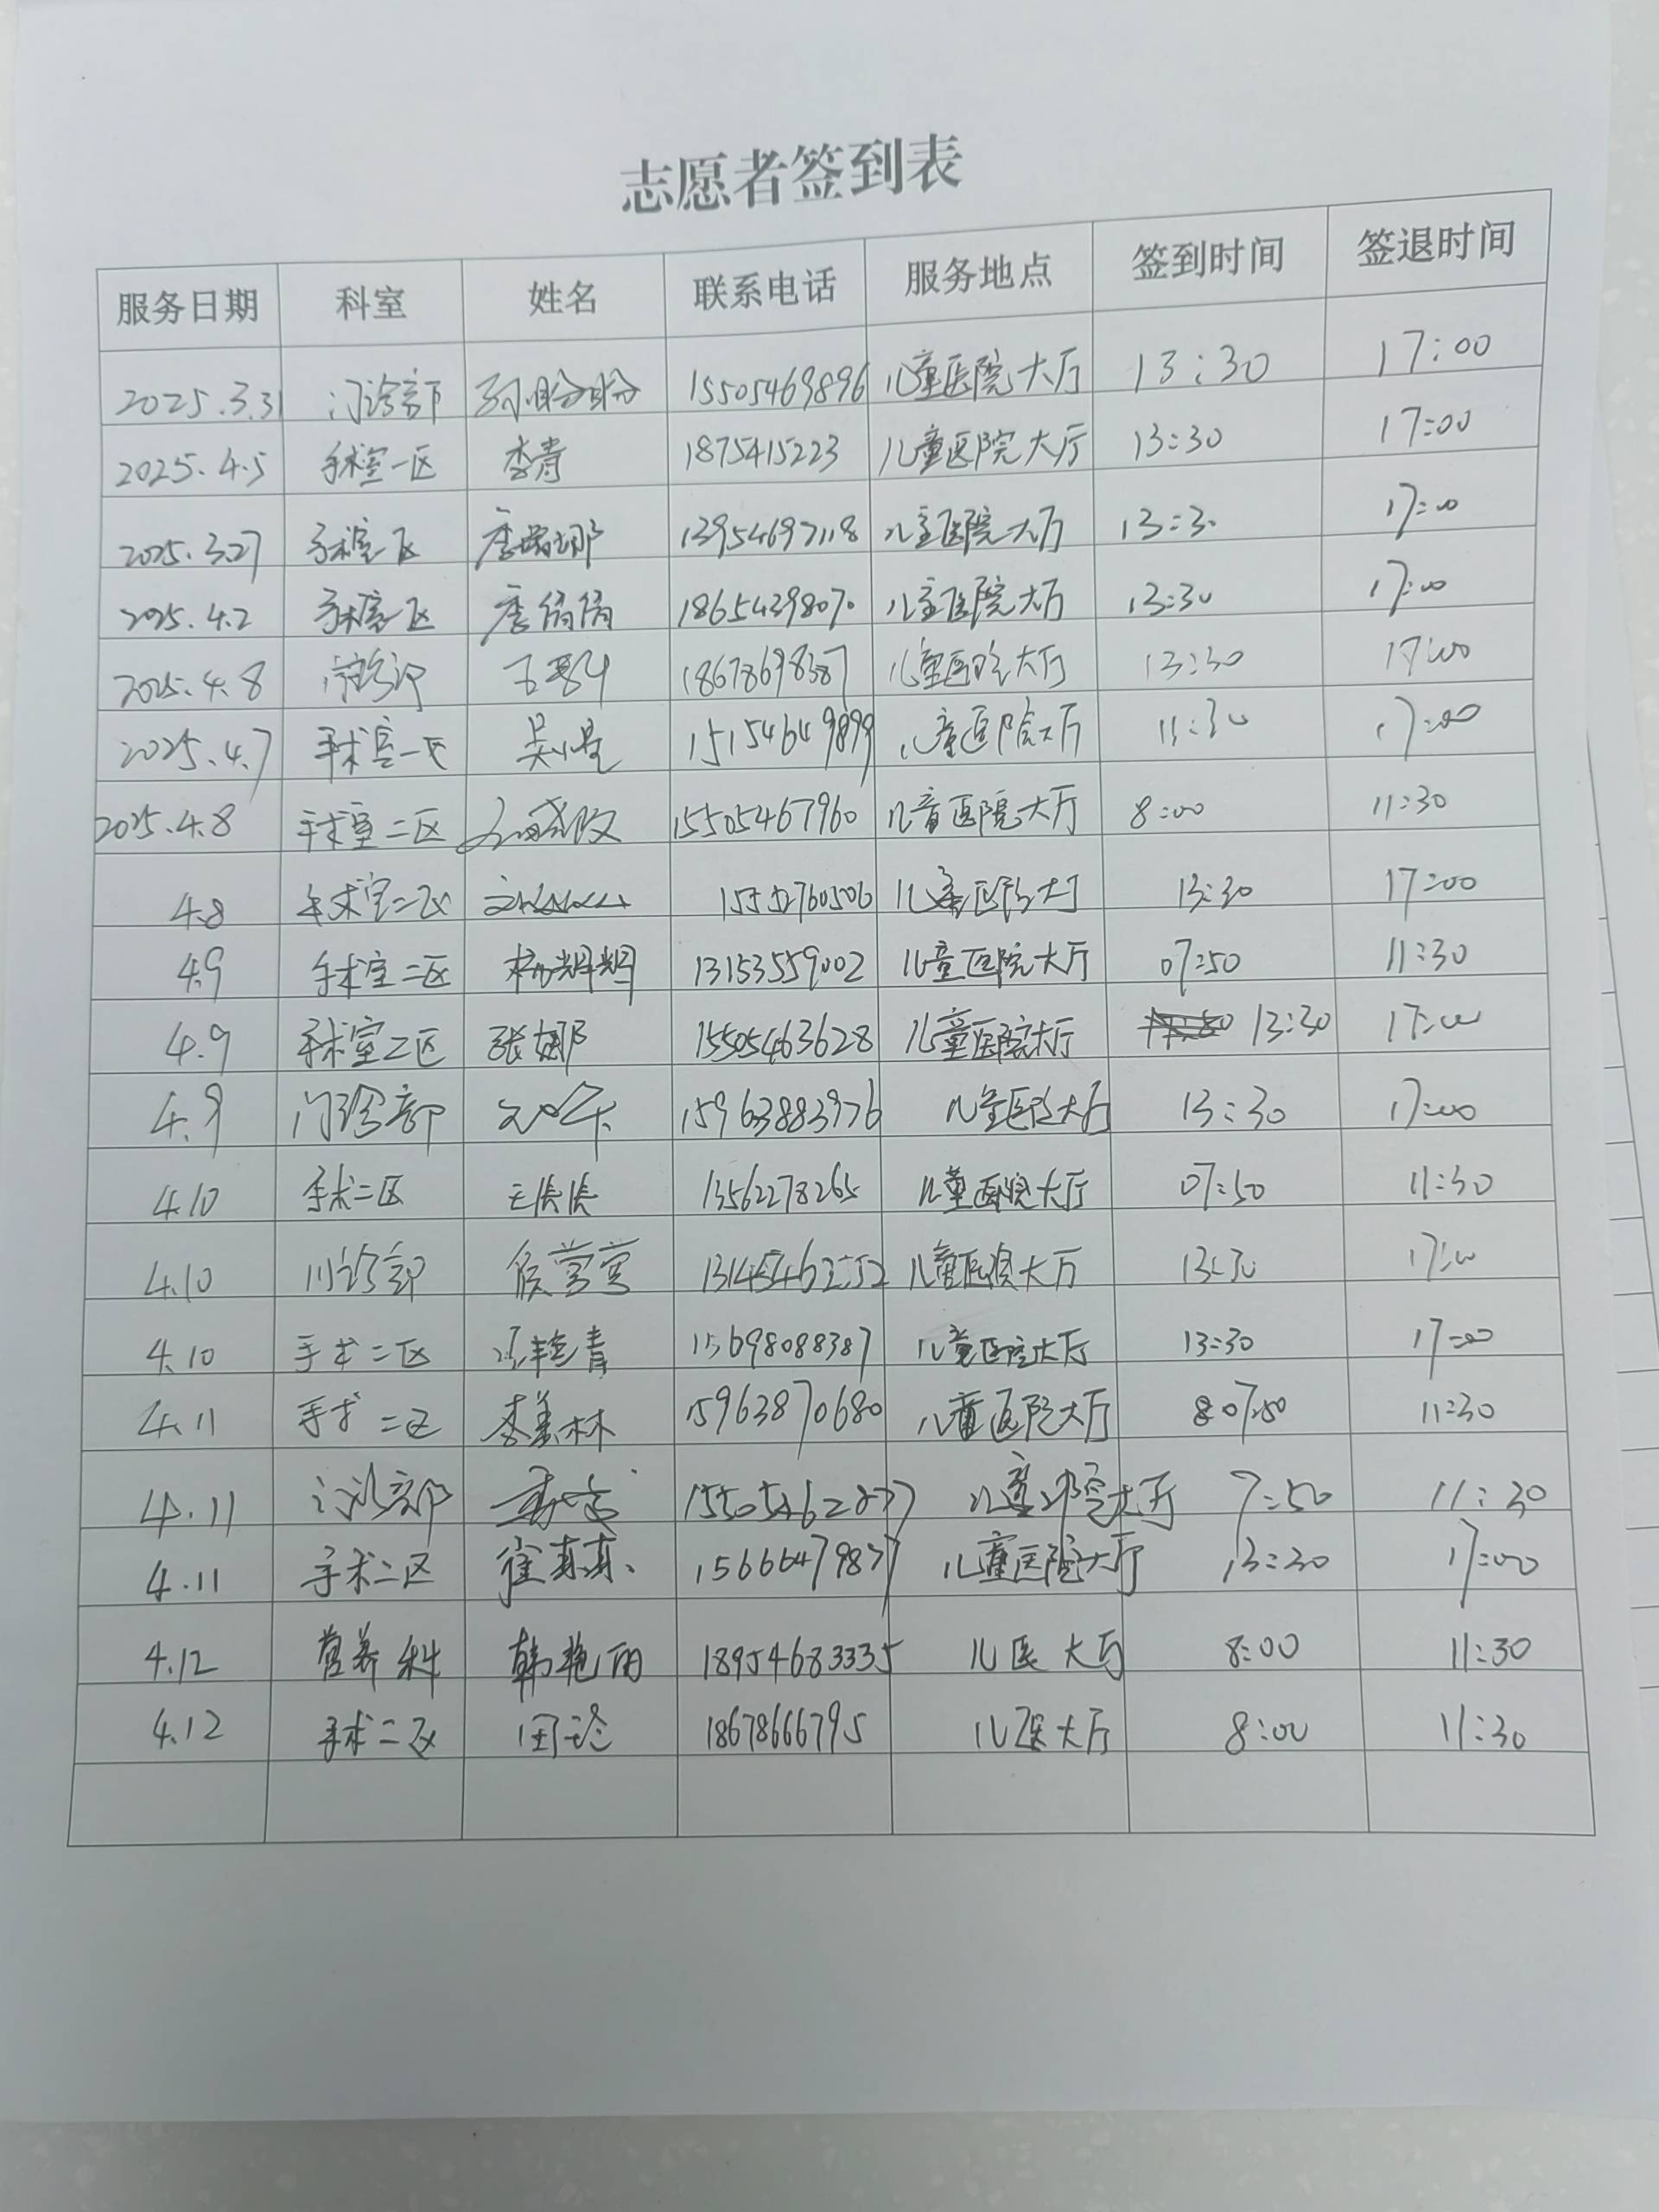 志愿者签到表
服务日期 科室 姓名 联系电话 服务地点 签到时间 签退时间
2025.3.31 门诊部 孙盼盼 15505469896 儿童医院大厅 13:30 17:00
2025.4.5 手术室一区 李青 1875415223 儿童医院大厅 13:30 17:00
2025.3.27 手术室区 李瑞娜 13954697118 儿童医院大厅 13:30 17:00
2025.4.2 手术室区 李倩倩 18654398070 儿童医院大厅 13:30 17:00
2025.4.8 18678698387 儿童医院大厅 13:30 17:00
2025.4.7 手术室一区 15154649899 儿童医院大厅 17:00
2025.4.8 手术室二区 15505467960 儿童医院大厅 8:00 11:30
4.8 手术室二区 儿童医院大厅 13:30 17:00
4.9 手术室二区 杨辉辉 13153559002 儿童医院大厅 07:50 11:30
4.9 手术室二区 张娜 15505463628 儿童医院大厅 13:30 17:00
4.9 门诊部 15963883976 儿童医院大厅 13:30 17:00
4.10 手术二区 13562278265 儿童医院大厅 07:50 11:30
4.10 门诊部 侯营营 儿童医院大厅 13:30 17:00
4.10 手术二区 15698088387 儿童医院大厅 13:30 17:00
4.11 手术二区 李美林 15963870680 儿童医院大厅 07:50 11:30
4.11 门诊部 大厅 7:50 11:30
4.11 手术二区 崔真真 15666479877 儿童医院大厅 13:30 17:00
4.12 营养科 韩艳丽 18954683335 儿医大厅 8:00 11:30
4.12 手术二区 18678666795 儿医大厅 8:00 11:30